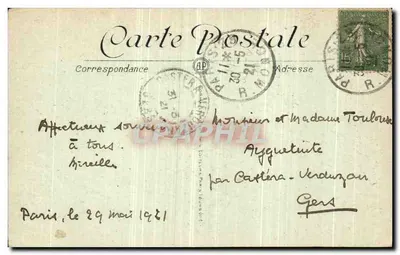 Carte Postale
Correspondance
Adresse
Affectueux souvenir
à tous.
Mireille
Paris, le 29 mai 1921
Monsieur et Madame Toulouse
Ayguetinte
par Castéra-Verduzan
Gers